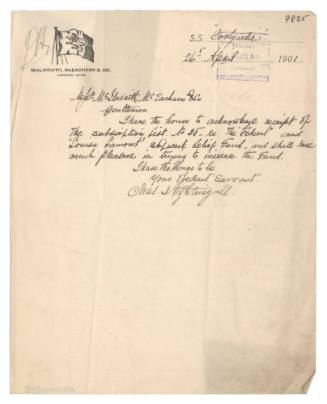 9825
McILWRAITH, McEACHARN & CO.
S.S.
26th April 1901.
Messrs McIlwraith McEacharn & Co
Gentlemen
I have the honor to acknowledge receipt of
the subscription list No 25. re the "Federal" and
"Louisa Lamont" Shipwreck Relief Fund, and shall have
much pleasure in trying to increase the Fund.
I have the honor to be
Your Obedient Servant
Chas. Nightingall.